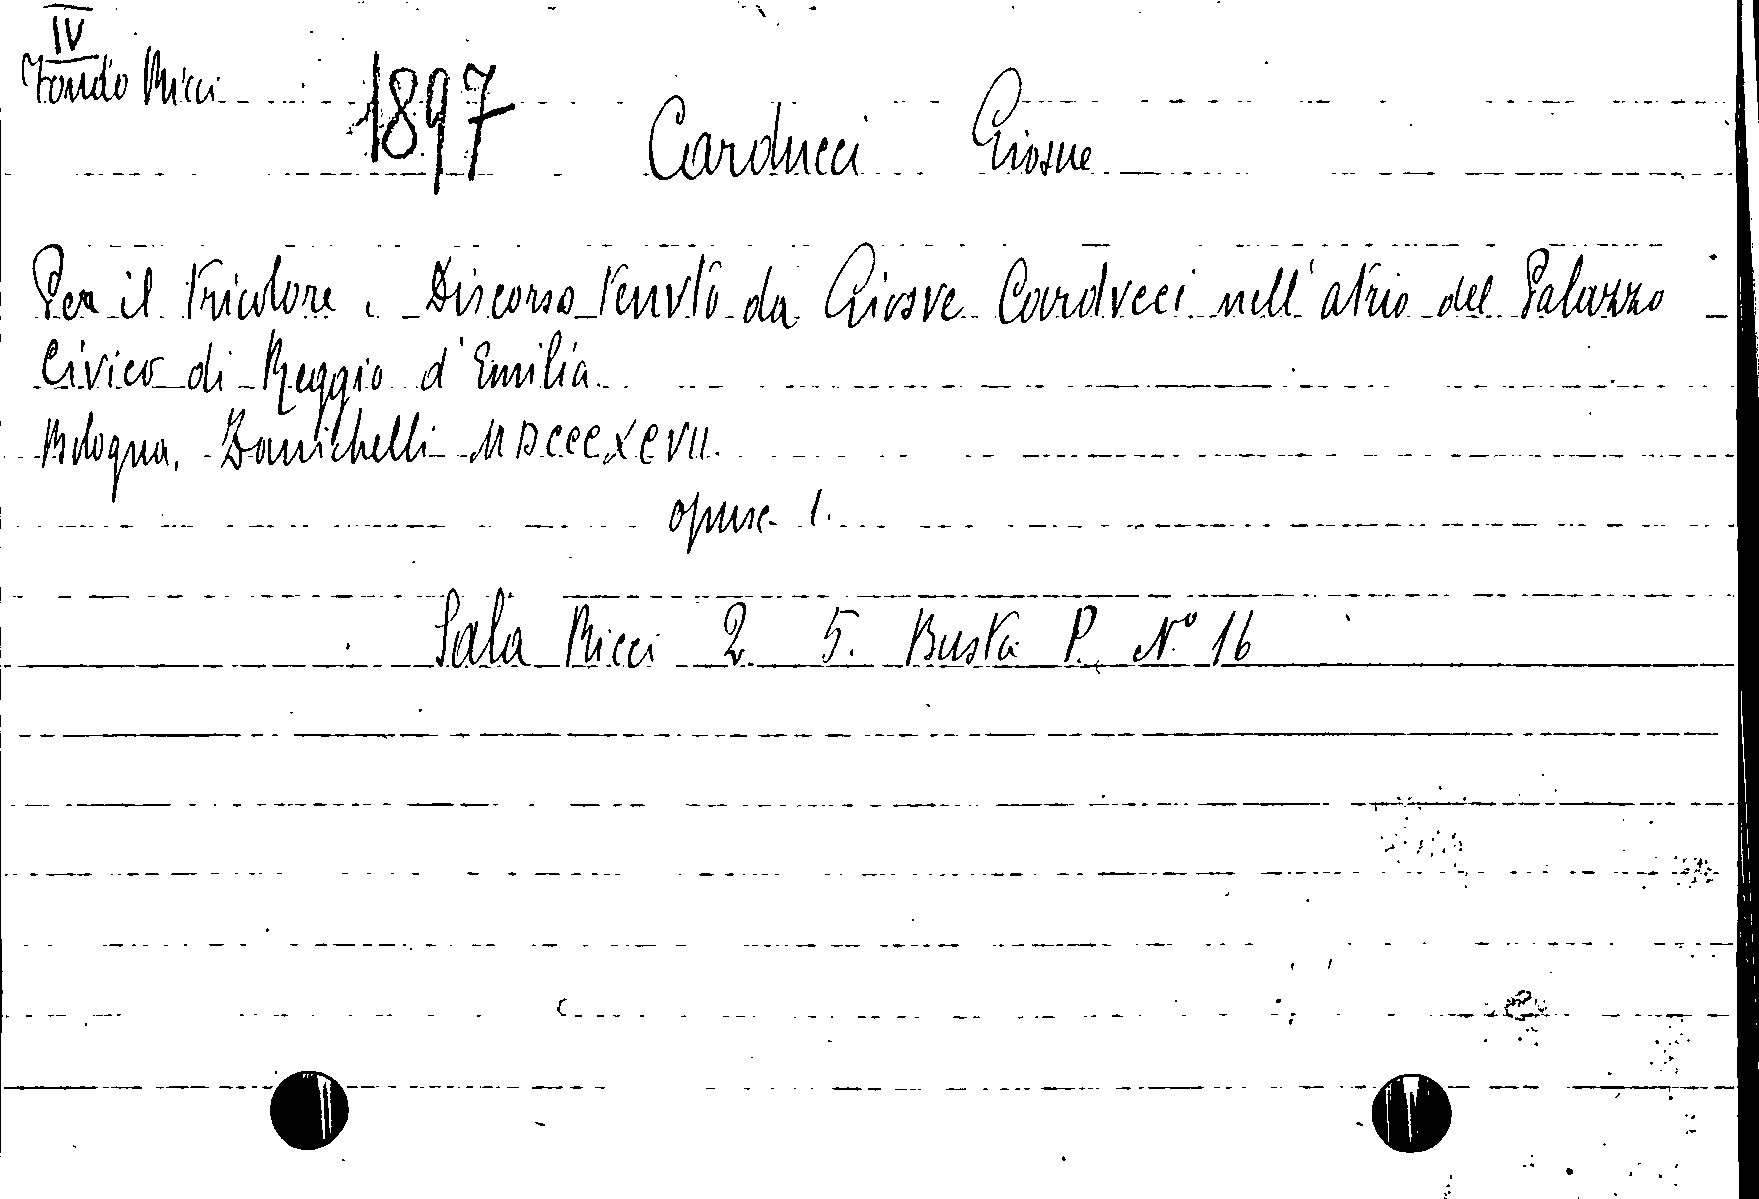 IV
Fondo Ricci
1897
Carducci Giosue
Per il tricolore. Discorso tenuto da Giosue Carducci nell'atrio del Palazzo
Civico di Reggio d'Emilia
Bologna. Zanichelli MDCCCXCVII.
opusc. 1.
Sala Ricci 2. 5. Busta P. N° 16